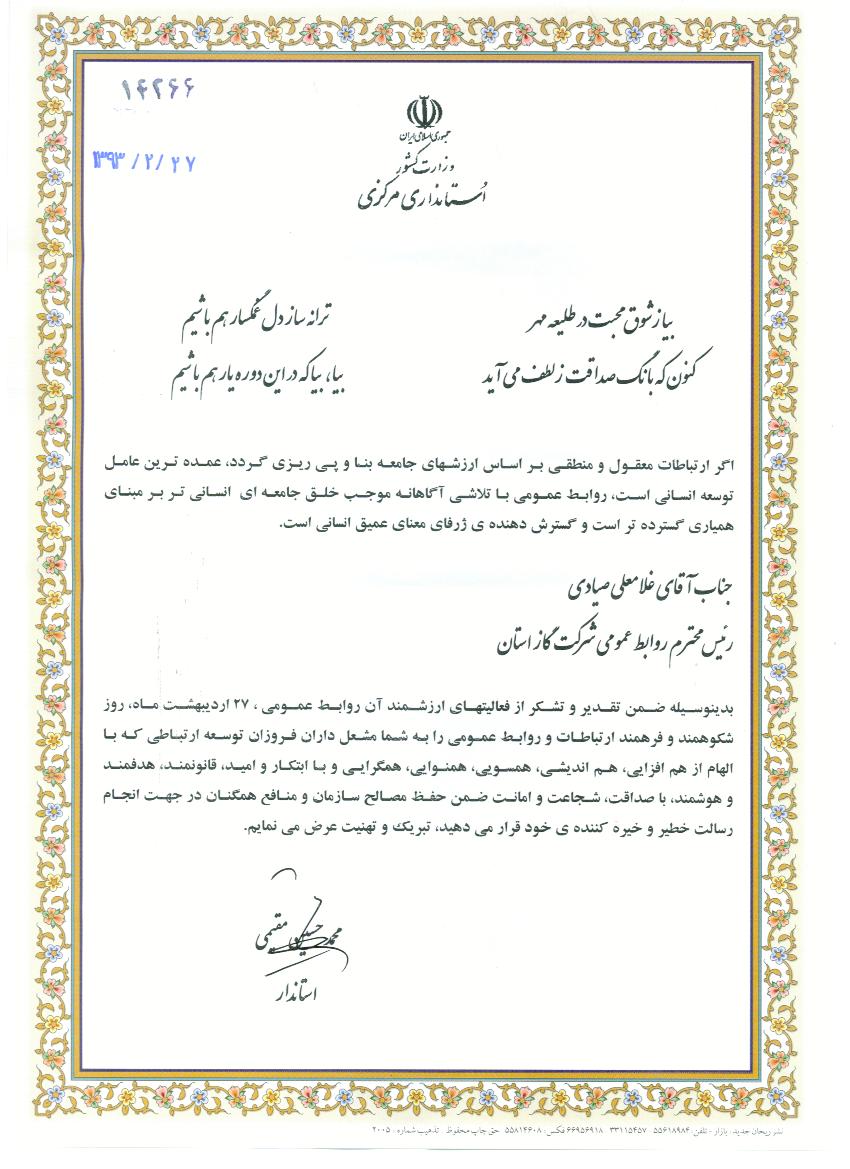 ۱۴۲۶۶
۱۳۹۳/۲/۲۷
جمهوری اسلامی ایران
وزارت کشور
اُستانداری مرکزی
بیا ز شوق محبت در طلیعه مهر ترانه ساز دل غمگسار هم باشیم
کنون که بانگ صداقت ز لطف می آید بیا، بیا که در این دوره یار هم باشیم
اگر ارتباطات معقول و منطقی بر اساس ارزشهای جامعه بنا و پی ریزی گردد، عمده ترین عامل
توسعه انسانی است، روابط عمومی با تلاشی آگاهانه موجب خلق جامعه ای انسانی تر بر مبنای
همیاری گسترده تر است و گسترش دهنده ی ژرفای معنای عمیق انسانی است.
جناب آقای غلامعلی صیادی
رئیس محترم روابط عمومی شرکت گاز استان
بدینوسیله ضمن تقدیر و تشکر از فعالیتهای ارزشمند آن روابط عمومی ، ۲۷ اردیبهشت ماه، روز
شکوهمند و فرهمند ارتباطات و روابط عمومی را به شما مشعل داران فروزان توسعه ارتباطی که با
الهام از هم افزایی، هم اندیشی، همسویی، همنوایی، همگرایی و با ابتکار و امید، قانونمند، هدفمند
و هوشمند، با صداقت، شجاعت و امانت ضمن حفظ مصالح سازمان و منافع همگنان در جهت انجام
رسالت خطیر و خیره کننده ی خود قرار می دهید، تبریک و تهنیت عرض می نمایم.
محمد حسین مقیمی
استاندار
نشر ریحان جدید، بازار - تلفن: ۵۵۶۱۸۹۸۴ - ۳۳۱۱۵۴۵۷ - ۶۶۹۵۶۹۱۸ فکس: ۵۵۸۱۴۶۰۸ حق چاپ محفوظ تذهیب شماره: ۲۰۰۵